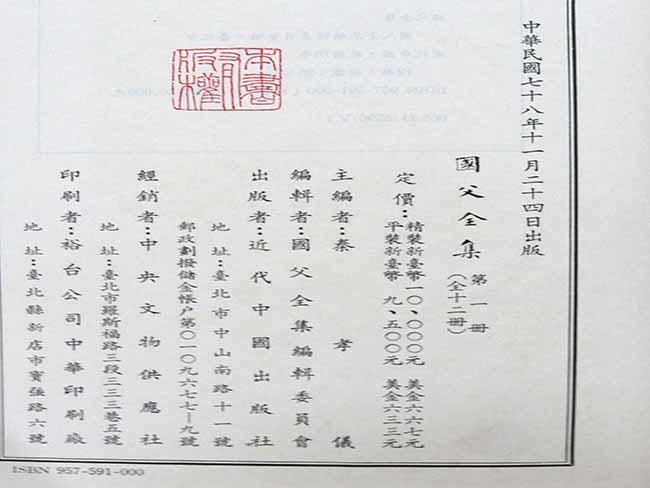 中華民國七十八年十一月二十四日出版
國父全集 第一冊
(全十二冊)
定價:精裝新臺幣一○、○○○元 美金六六七元
平裝新臺幣 九、五○○元 美金六三三元
主編者:秦孝儀
編輯者:國父全集編輯委員會
出版者:近代中國出版社
地址:臺北市中山南路十一號
郵政劃撥儲金帳户第○一○九六七七—九號
經銷者:中央文物供應社
地址:臺北市羅斯福路三段三三三巷五號
印刷者:裕台公司中華印刷廠
地址:臺北縣新店市寶強路六號
本書
有
版權
ISBN 957-591-000